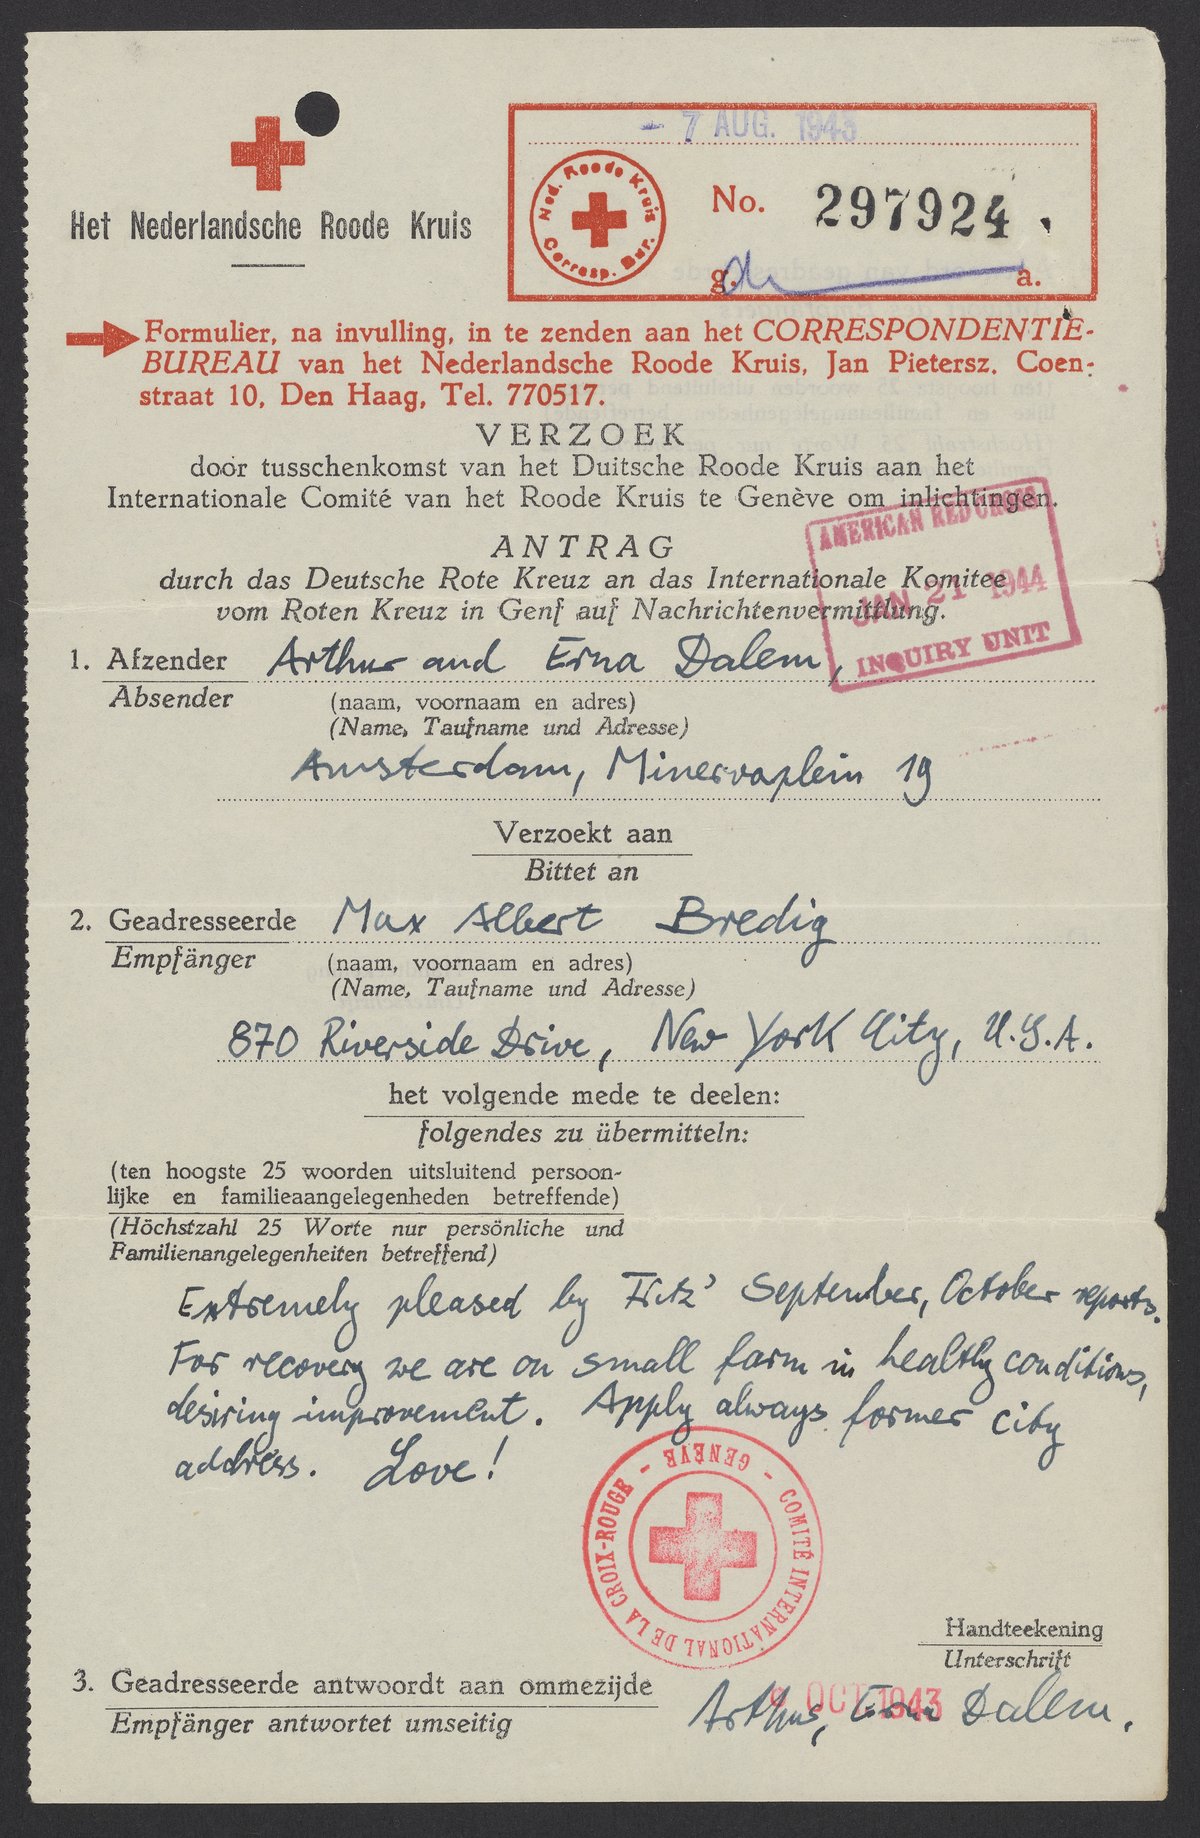 - 7 AUG. 1943
Ned. Roode Kruis
Corresp. Bur.
No. 297924
g. a.
Het Nederlandsche Roode Kruis
Formulier, na invulling, in te zenden aan het CORRESPONDENTIE-
BUREAU van het Nederlandsche Roode Kruis, Jan Pietersz. Coen-
straat 10, Den Haag, Tel. 770517.
VERZOEK
door tusschenkomst van het Duitsche Roode Kruis aan het
Internationale Comité van het Roode Kruis te Genève om inlichtingen.
AMERICAN RED CROSS
JAN 21 1944
INQUIRY UNIT
ANTRAG
durch das Deutsche Rote Kreuz an das Internationale Komitee
vom Roten Kreuz in Genf auf Nachrichtenvermittlung.
1. Afzender Arthur and Erna Dalem,
Absender (naam, voornaam en adres)
(Name, Taufname und Adresse)
Amsterdam, Minervaplein 19
Verzoekt aan
Bittet an
2. Geadresseerde Max Albert Bredig
Empfänger (naam, voornaam en adres)
(Name, Taufname und Adresse)
870 Riverside Drive, New York City, U.S.A.
het volgende mede te deelen:
folgendes zu übermitteln:
(ten hoogste 25 woorden uitsluitend persoon-
lijke en familieaangelegenheden betreffende)
(Höchstzahl 25 Worte nur persönliche und
Familienangelegenheiten betreffend)
Extremely pleased by Fritz' September, October reports.
For recovery we are on small farm in healthy conditions,
desiring improvement. Apply always former city
address. Love!
COMITÉ INTERNATIONAL DE LA CROIX-ROUGE - GENÈVE -
Handteekening
Unterschrift
3. Geadresseerde antwoordt aan ommezijde
Empfänger antwortet umseitig
OCT. 1943
Arthur, Erna Dalem.